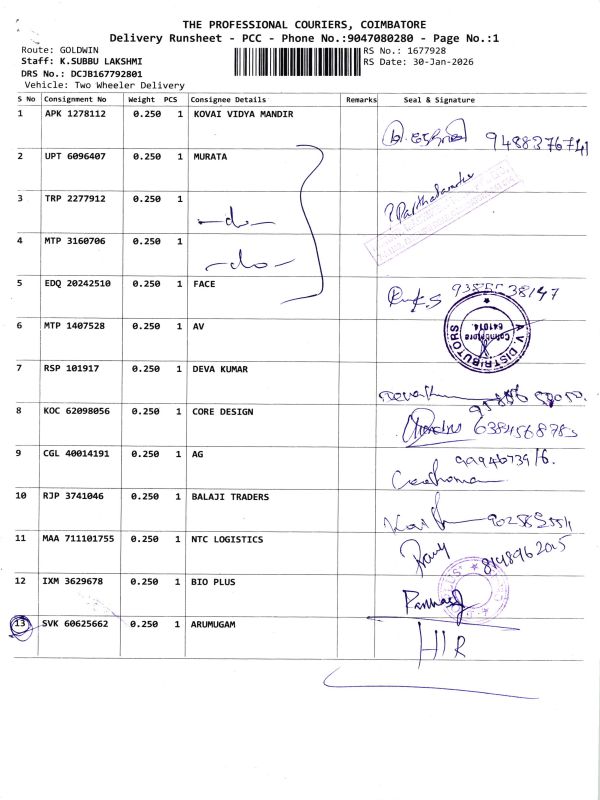 THE PROFESSIONAL COURIERS, COIMBATORE
Delivery Runsheet - PCC - Phone No.:9047080280 - Page No.:1
Route: GOLDWIN
RS No.: 1677928
Staff: K.SUBBU LAKSHMI
RS Date: 30-Jan-2026
DRS No.: DCJB167792801
Vehicle: Two Wheeler Delivery
S No Consignment No Weight PCS Consignee Details Remarks Seal & Signature
1 APK 1278112 0.250 1 KOVAI VIDYA MANDIR
9488376741
2 UPT 6096407 0.250 1 MURATA
3 TRP 2277912 0.250 1
-do-
4 MTP 3160706 0.250 1
-do-
5 EDQ 20242510 0.250 1 FACE
6 MTP 1407528 0.250 1 AV A.V. DISTRIBUTORS Coimbatore 641014.
7 RSP 101917 0.250 1 DEVA KUMAR
8 KOC 62098056 0.250 1 CORE DESIGN
9 CGL 40014191 0.250 1 AG
10 RJP 3741046 0.250 1 BALAJI TRADERS
11 MAA 711101755 0.250 1 NTC LOGISTICS
8148962005
12 IXM 3629678 0.250 1 BIO PLUS
13 SVK 60625662 0.250 1 ARUMUGAM
HIR